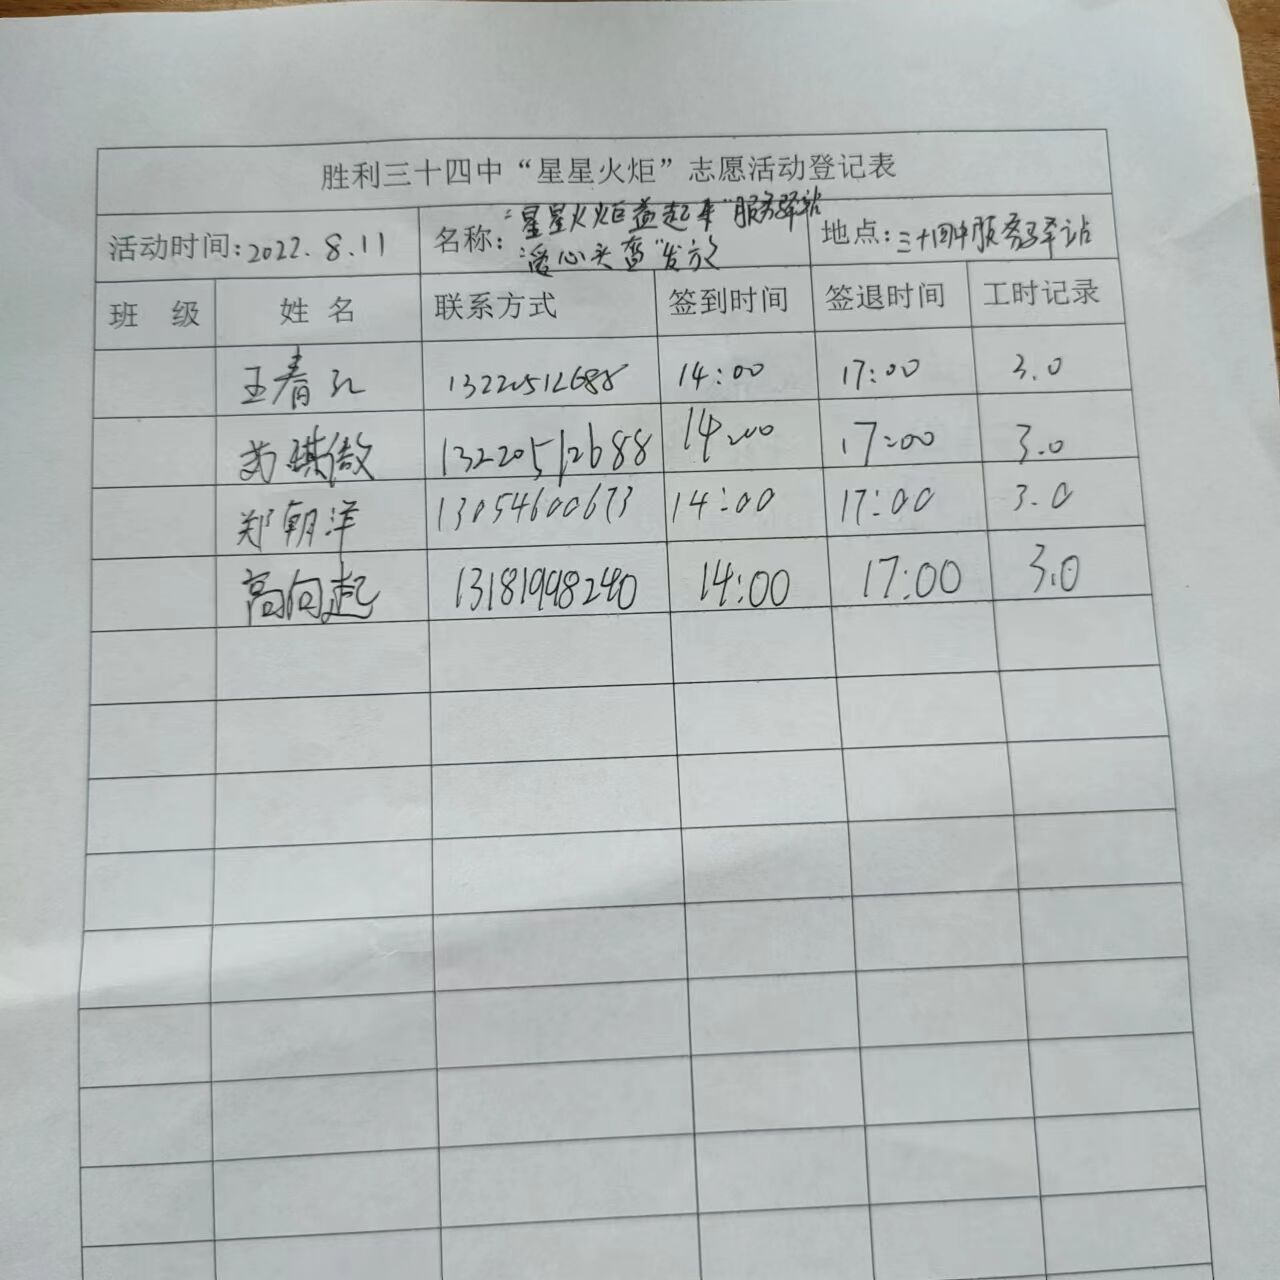 胜利三十四中“星星火炬”志愿活动登记表
活动时间:2022.8.11 名称:“星星火炬益起来”服务驿站 地点:三十四中服务驿站
“爱心头盔”发放
班 级 姓 名 联系方式 签到时间 签退时间 工时记录
王春 13220512688 14:00 17:00 3.0
13220512688 14:00 17:00 3.0
郑朝洋 13054600673 14:00 17:00 3.0
高向起 13181998240 14:00 17:00 3.0